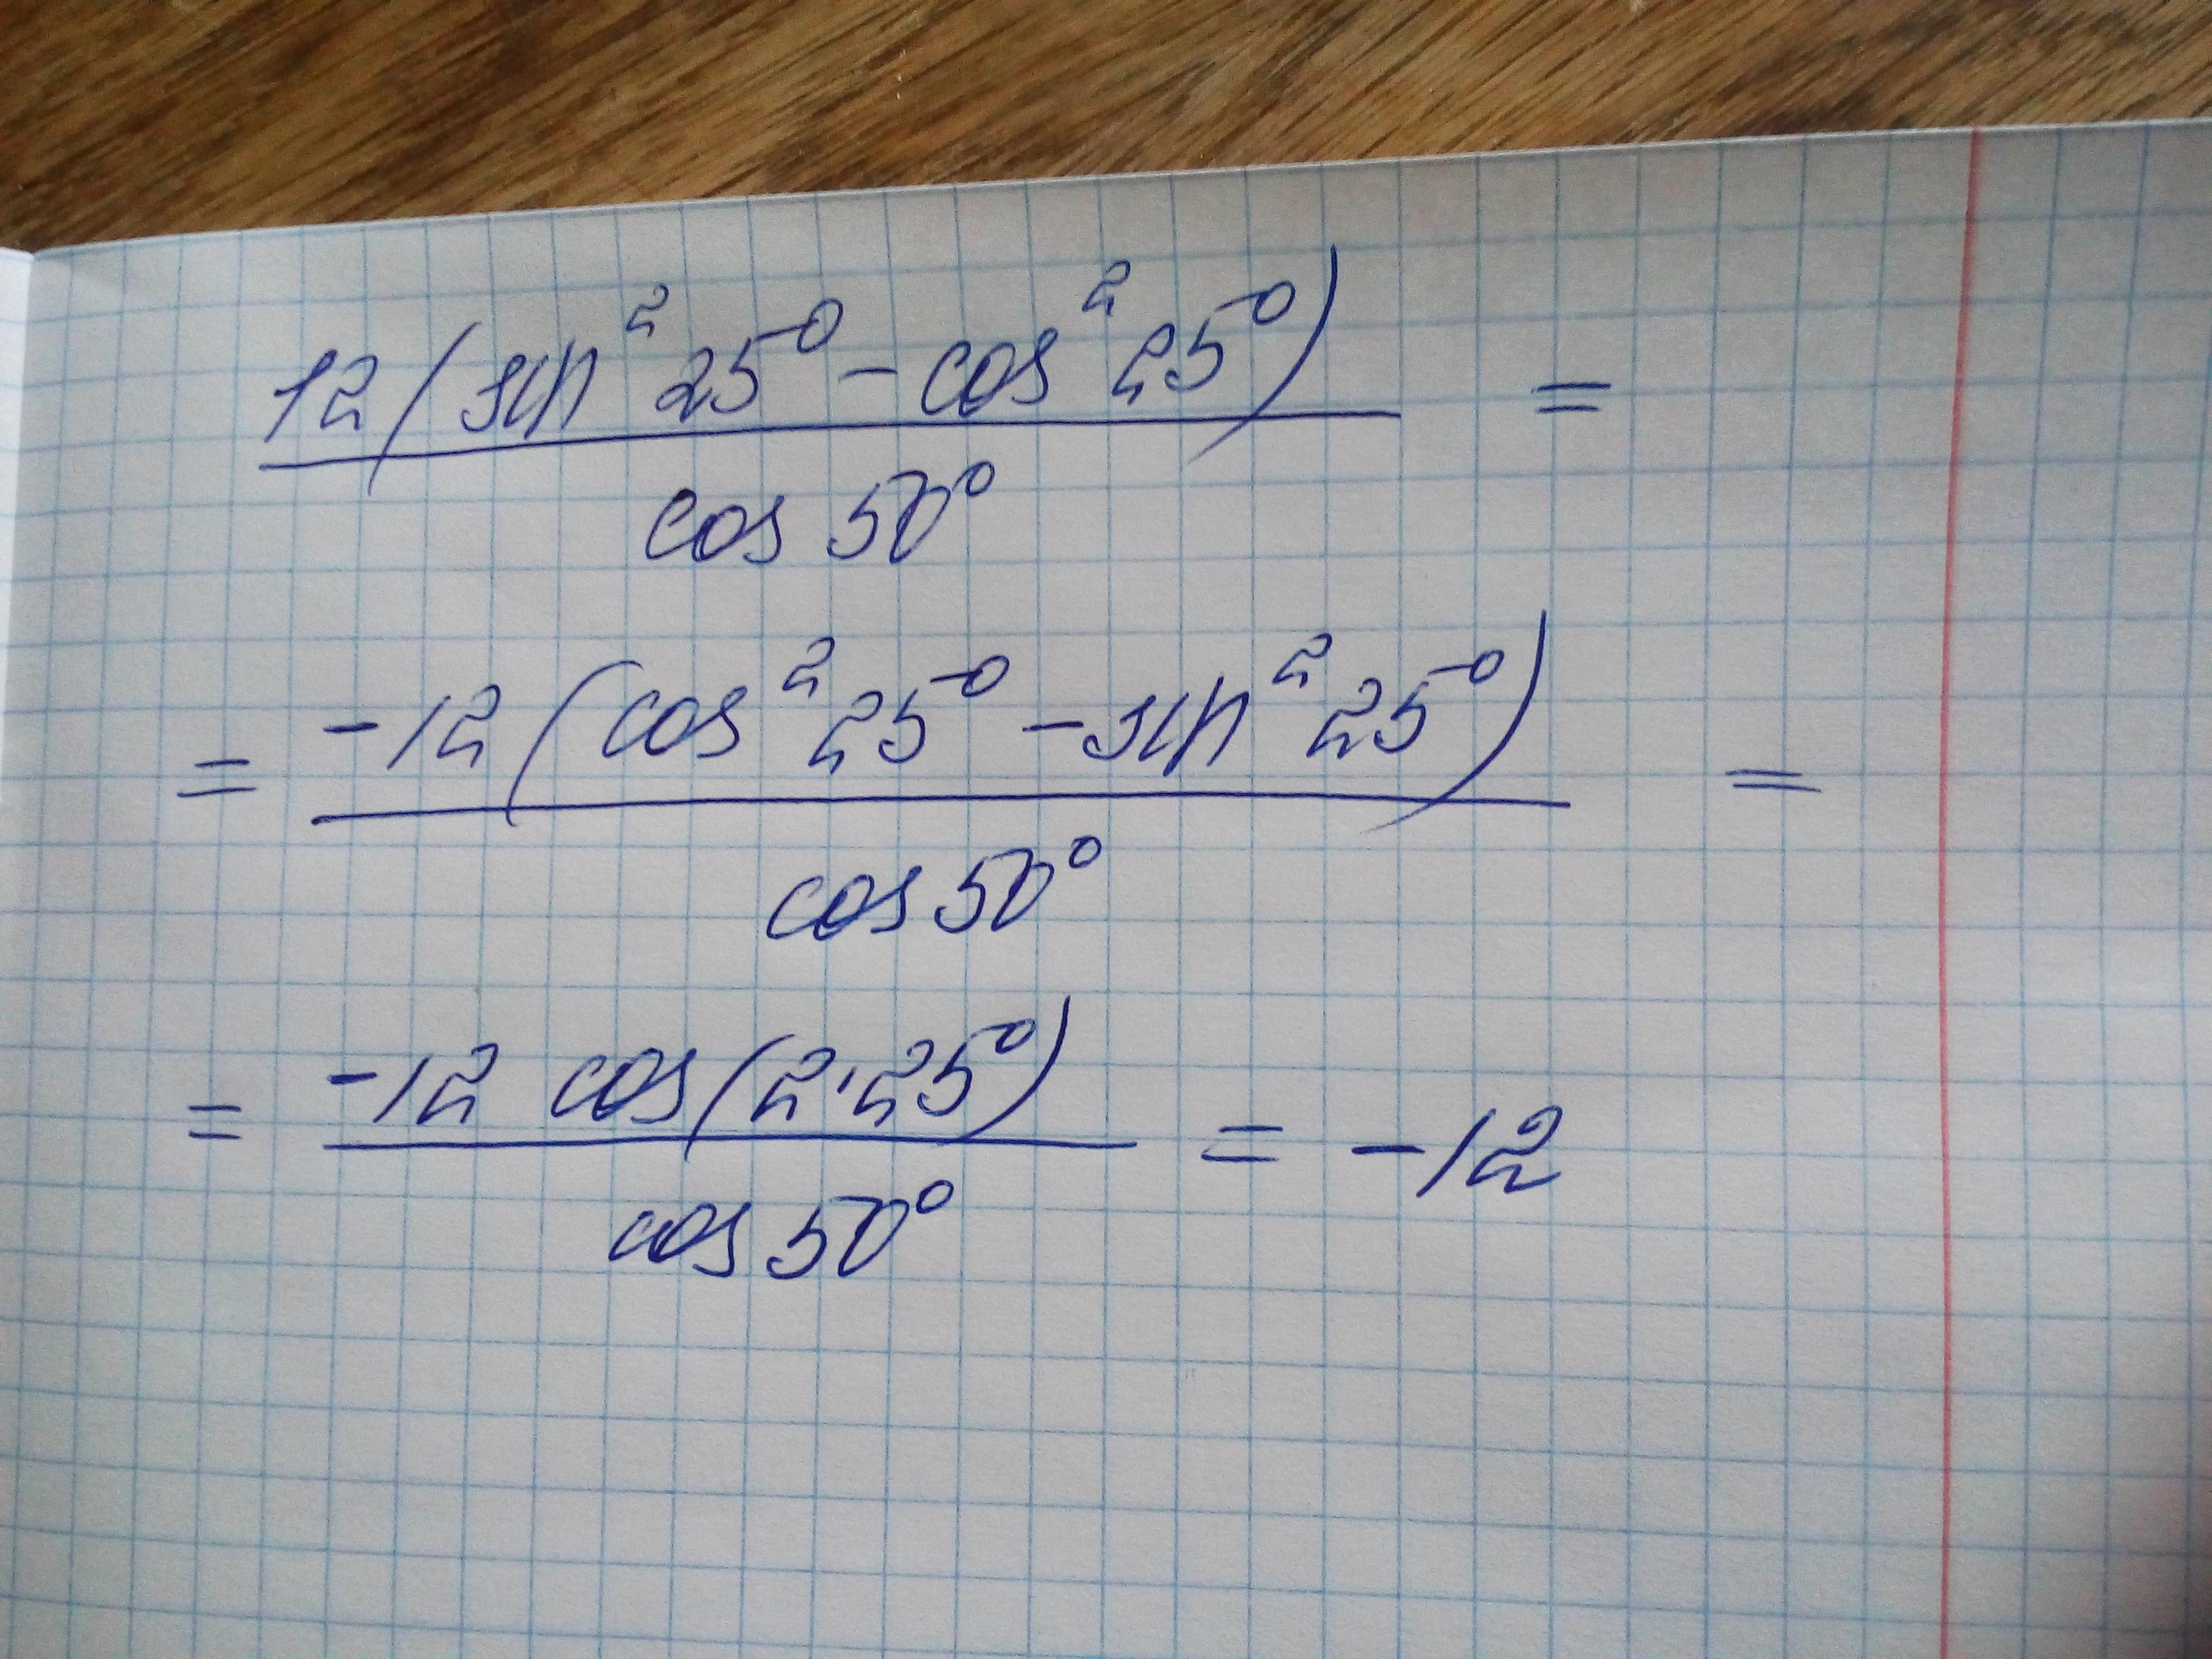 12(sin²25°-cos²25°)/cos 50° =
= -12(cos²25°-sin²25°)/cos 50° =
= -12 cos(2·25°)/cos 50° = -12